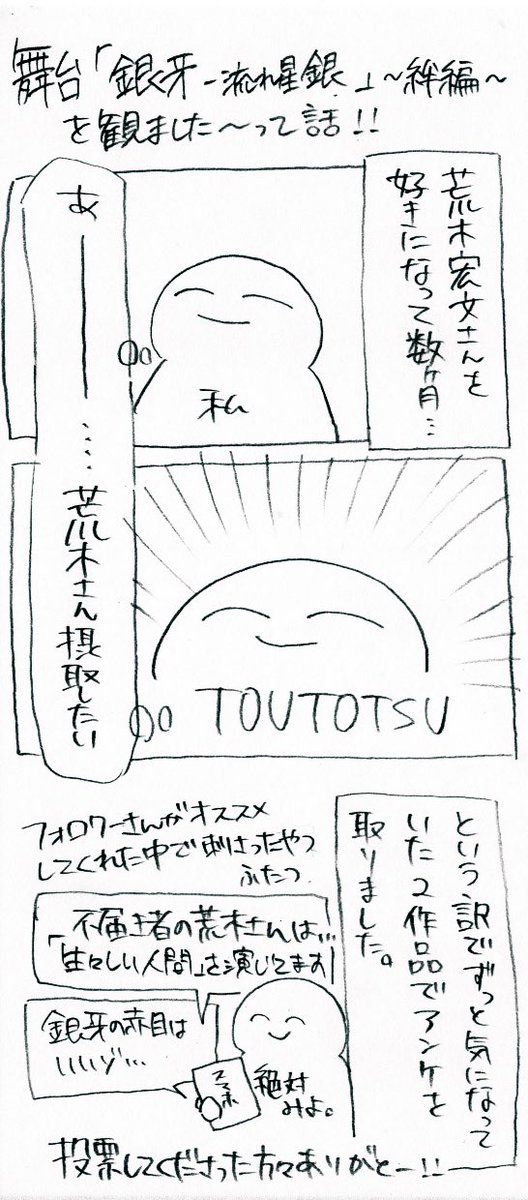 舞台「銀牙-流れ星銀-」~絆編~
を観ました~って話!!
荒木宏文さんを
好きになって数ヶ月…
あ――……荒木さん摂取したい
私
TOUTOTSU
という訳でずっと気になって
いた2作品でアンケを
取りました。
フォロワーさんがオススメ
してくれた中で刺さったやつ
ふたつ
不届き者の荒木さんは…
「生々しい人間」を演じてます!
銀牙の赤目は
いいゾ…
スマホ
絶対
みよ。
投票してくださった方々ありがとー!!